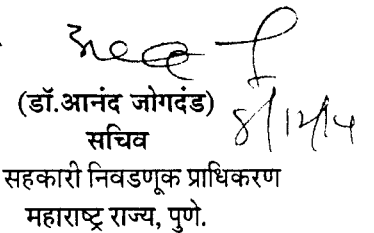 (डॉ.आनंद जोगदंड)
सचिव
सहकारी निवडणूक प्राधिकरण
महाराष्ट्र राज्य, पुणे.